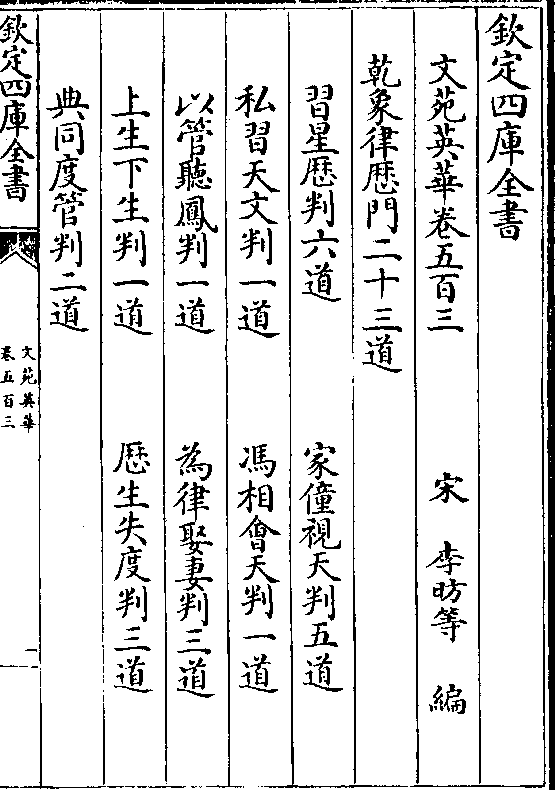 欽定四庫全書
文苑英華卷五百三 宋 李昉等 編
乾象律歴門二十三道
習星歴判六道 家僮視天判五道
私習天文判一道 馮相會天判一道
以管聽鳳判一道 為律娶妻判三道
上生下生判一道 歴生失度判三道
典同度管判二道
欽定四庫全書
文苑英華
卷五百三
一